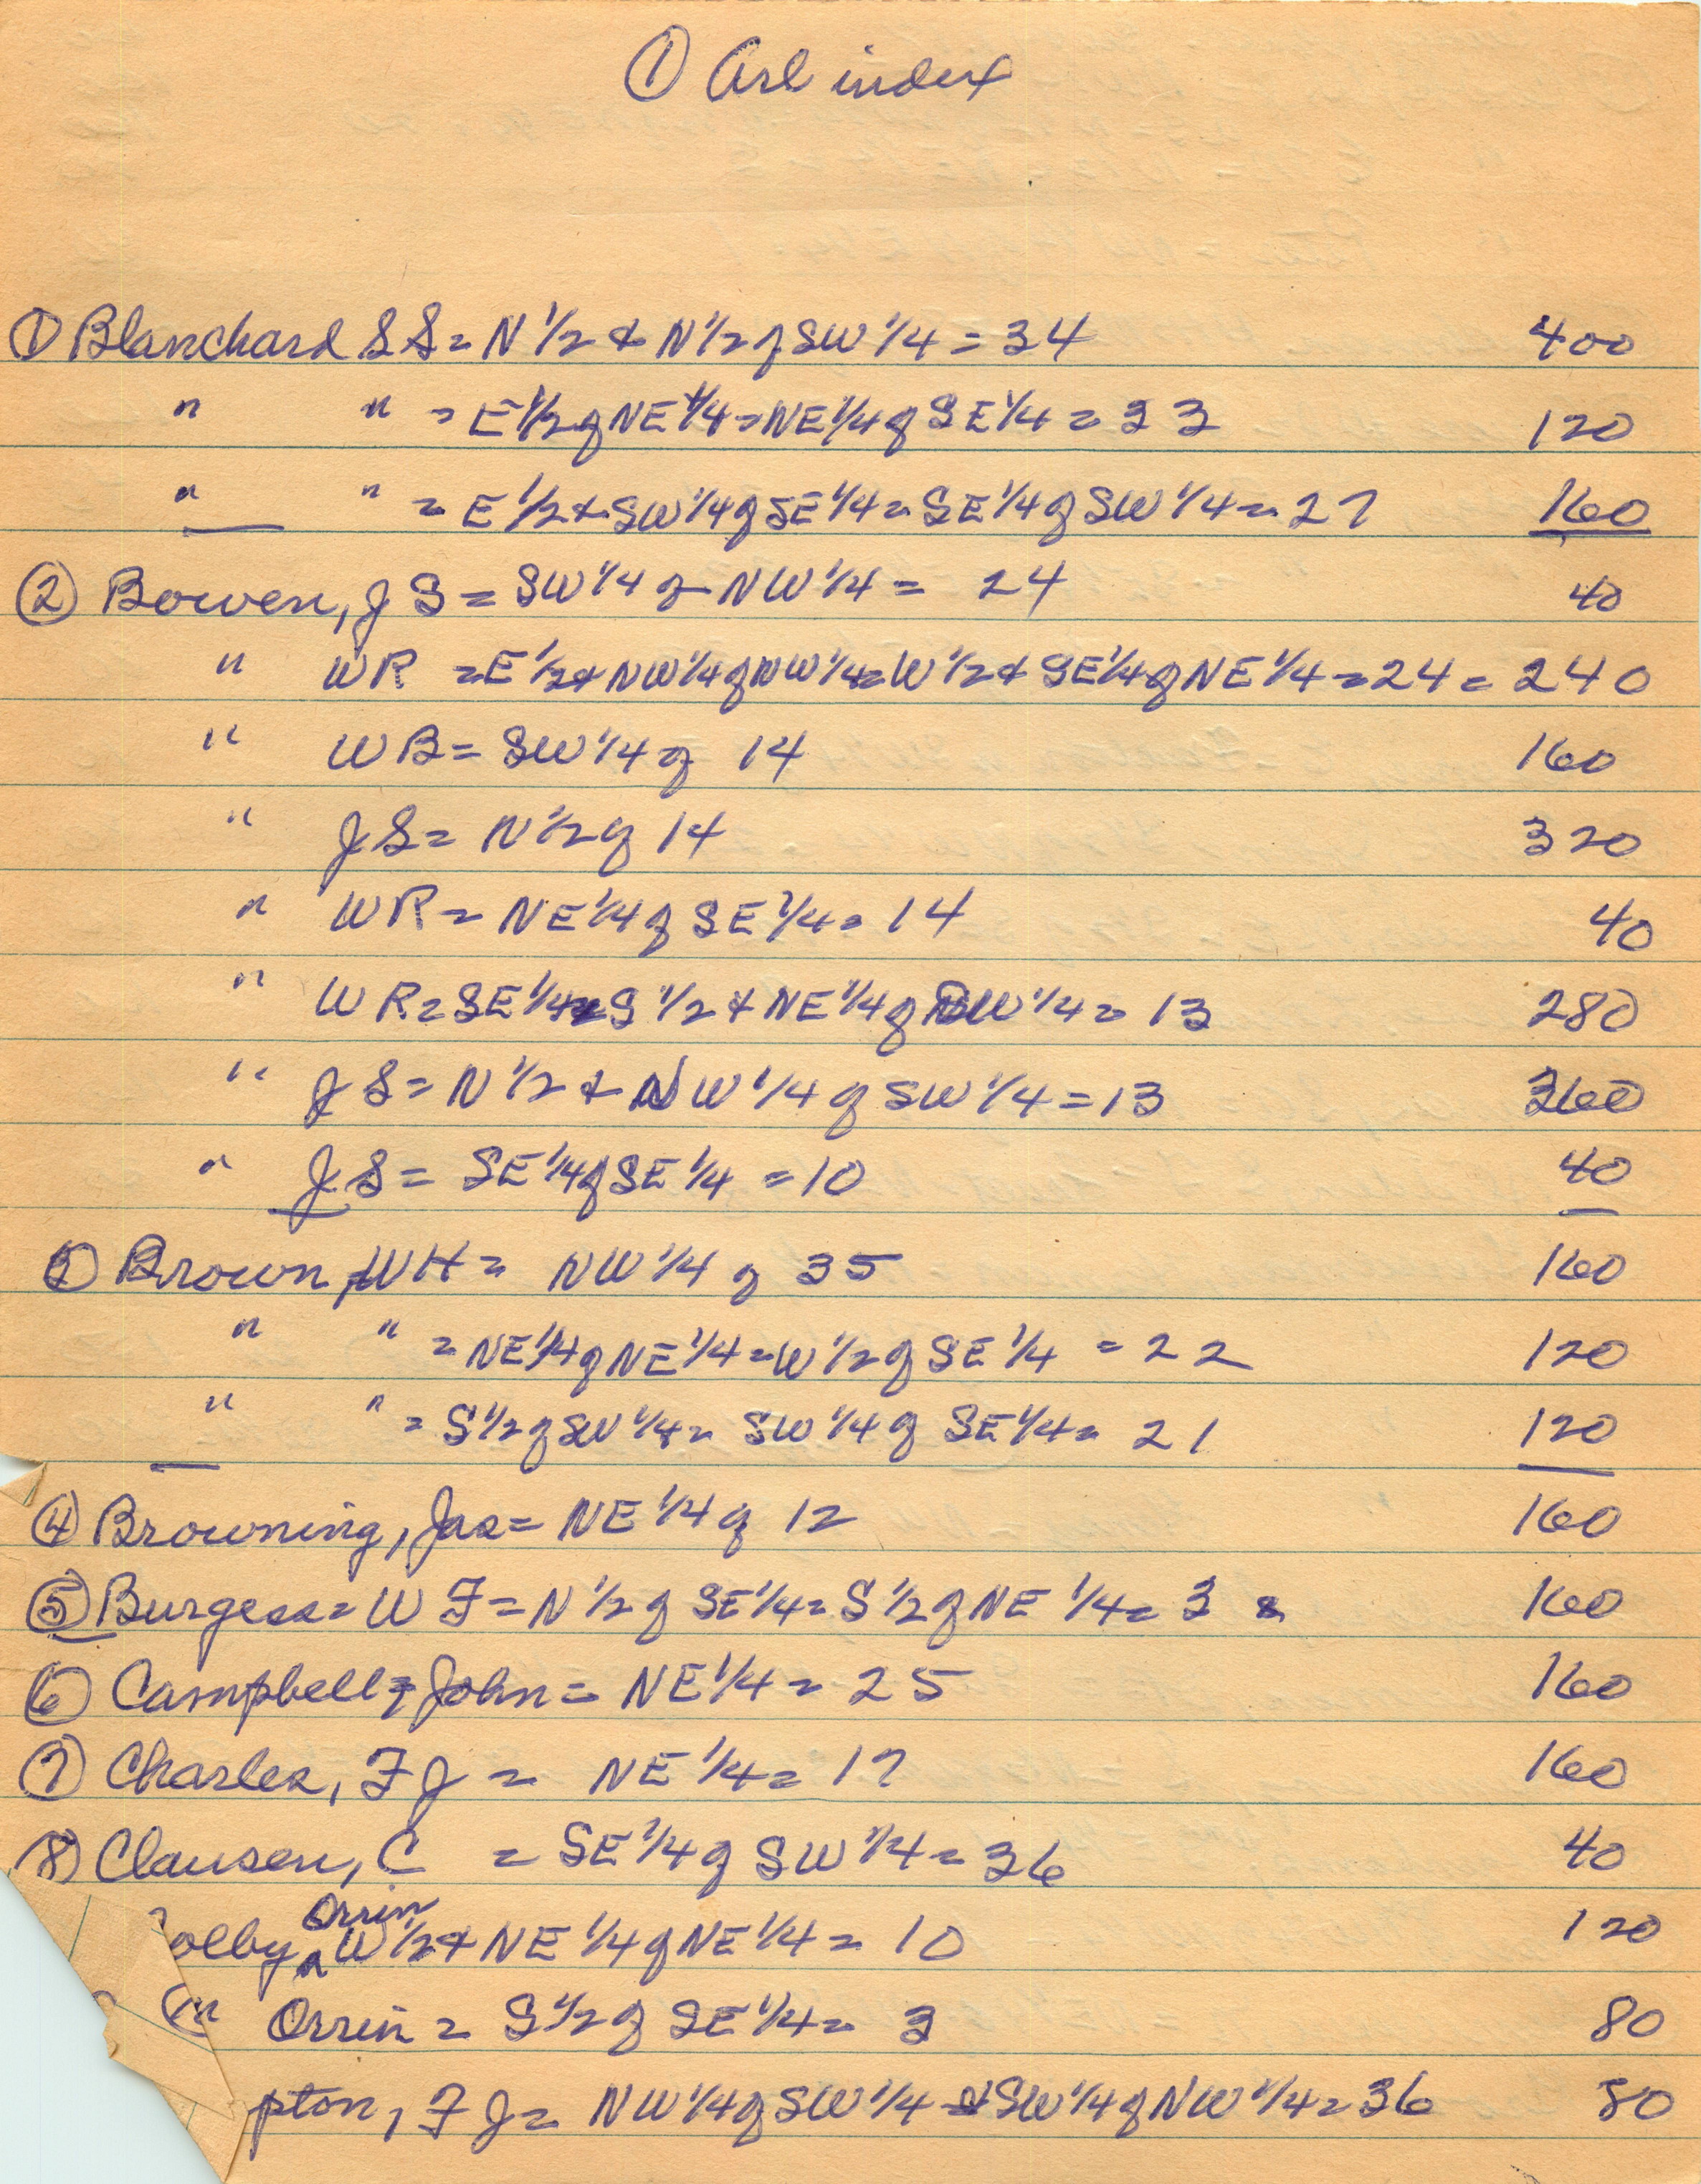 ① Arl index
① Blanchard S S = N 1/2 & N 1/2 of SW 1/4 = 34 400
" " = E 1/2 of NE 1/4 = NE 1/4 of SE 1/4 = 33 120
" " = E 1/2 & SW 1/4 of SE 1/4 = SE 1/4 of SW 1/4 = 27 160
② Bowen, J S = SW 1/4 of NW 1/4 = 24 40
" WR = E 1/2 & NW 1/4 of NW 1/4 = W 1/2 & SE 1/4 of NE 1/4 = 24 = 240
" WB = SW 1/4 of 14 160
" J S = N 1/2 of 14 320
" WR = NE 1/4 of SE 1/4 = 14 40
" WR = SE 1/4 = S 1/2 & NE 1/4 of SW 1/4 = 13 280
" J S = N 1/2 & NW 1/4 of SW 1/4 = 13 360
" J S = SE 1/4 of SE 1/4 = 10 40
③ Brown, WH = NW 1/4 of 35 160
" " = NE 1/4 of NE 1/4 = W 1/2 of SE 1/4 = 22 120
" " = S 1/2 of SW 1/4 = SW 1/4 of SE 1/4 = 21 120
④ Browning, Jas = NE 1/4 of 12 160
⑤ Burgess = W F = N 1/2 of SE 1/4 = S 1/2 of NE 1/4 = 3 160
⑥ Campbell, John = NE 1/4 = 25 160
⑦ Charles, F J = NE 1/4 = 17 160
⑧ Clausen, C = SE 1/4 of SW 1/4 = 36 40
olby, Orrin W 1/2 & NE 1/4 of NE 1/4 = 10 120
" Orrin = S 1/2 of SE 1/4 = 3 80
pton, F J = NW 1/4 of SW 1/4 & SW 1/4 of NW 1/4 = 36 80